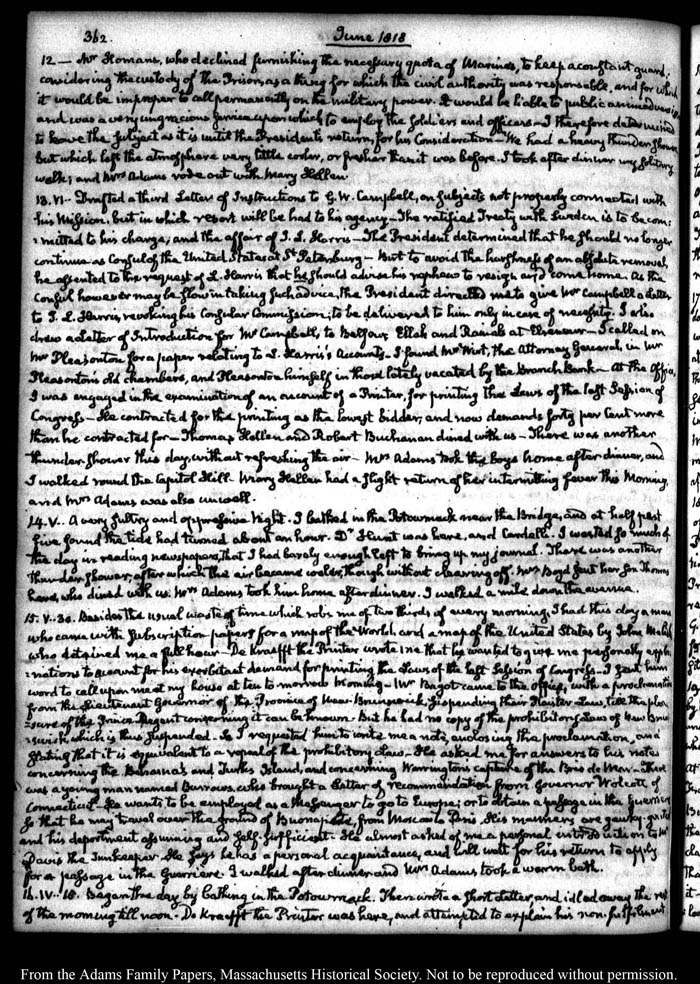 362.
June 1818
12 — Mr Homans, who declined furnishing the necessary quota of Marines, to keep a constant guard,
considering the custody of the Prison, as a thing for which the civil authority was responsible, and for which
it would be improper to call permanently on the military power. It would be liable to public animadversion
and was a very ungracious service upon which to employ the soldiers and officers — I therefore determined
to leave the subject as it is until the President's return, for his Consideration — We had a heavy thunder shower
but which left the atmosphere very little cooler, or fresher than it was before. I took after dinner my solitary
walk; and Mrs Adams rode out with Mary Hellen.
13. VI. Drafted a third Letter of Instructions to G. W. Campbell, on subjects not properly connected with
his Mission, but in which resort will be had to his agency — The ratified Treaty with Sweden is to be com-
mitted to his charge, and the affair of J. L. Harris — The President determined that he should no longer
continue as Consul of the United States at St Petersburg — But to avoid the harshness of an absolute removal,
he assented to the request of L. Harris that he should advise his nephew to resign and come home. As the
Consul however may be slow in taking such advice, the President directed me to give Mr Campbell a letter
to J. L. Harris, revoking his Consular Commission; to be delivered to him only in case of necessity. I also
drew a Letter of Introduction for Mr Campbell, to Balfour, Ellah and Rainals at Elseneur — I called on
Mr Pleasonton for a paper relating to L. Harris's Accounts. I found Mr Wirt, the Attorney General, in Mr
Pleasonton's old chambers, and Pleasonton himself in those lately vacated by the Branch Bank — At the Office,
I was engaged in the examination of an account of a Printer, for printing the Laws of the last Session of
Congress — He contracted for the printing as the lowest bidder, and now demands forty per Cent more
than he contracted for — Thomas Hellen and Robert Buchanan dined with us — There was another
thunder shower this day, without refreshing the air — Mrs Adams took the boys home after dinner, and
I walked round the Capitol Hill. Mary Hellen had a slight return of her intermitting fever this Morning,
and Mrs Adams was also unwell.
14. V. A very sultry and oppressive Night. I bathed in the Potowmack near the Bridge, and at half past
five found the tide had turned about an hour. Dr Hunt was here, and Cardelli. I wasted so much of
the day in reading newspapers, that I had barely enough left to bring up my journal. There was another
thunder shower, after which the air became cooler, though without clearing off. Mrs Boyd sent her son Thomas
here, who dined with us. Mrs Adams took him home after dinner. I walked a mile down the avenue.
15. V. 30. Besides the usual waste of time which robs me of two thirds of every morning, I had this day a man
who came with Subscription papers for a map of the World, and a map of the United States by John Melish
who detained me a full hour — De Krafft the Printer wrote me that he wanted to give me personally expla-
nations to account for his exorbitant demand for printing the Laws of the last Session of Congress — I sent him
word to call upon me at my house at ten to-morrow morning — Mr Bagot came to the office, with a proclamation
from the Lieutenant Governor of the Province of New-Brunswick, suspending their Plaister Law, till the plea-
sure of the Prince Regent concerning it can be known. But he had no copy of the prohibitory Law of New Bruns-
wick which is thus suspended. So I requested him to write me a note, enclosing the proclamation, and
stating that it is equivalent to a repeal of the prohibitory Law. He asked me for answers to his notes
concerning the Bahama's and Turks Island, and concerning Warrington's capture of the Brig de Mar — there
was a young man named Burrows, who brought a Letter of recommendation from Governor Wolcott of
Connecticut. He wants to be employed as a Messenger to go to Europe; or to obtain a passage in the Guerriere
so that he may travel over the ground of Buonaparte, from Moscow to Paris. His manners are gawky-
and his deportment assuming and self-sufficient. He almost asked of me a personal introduction to Mr
Davis the Innkeeper. He says he has a personal acquaintance, and will wait for his return to apply
for a passage in the Guerriere. I walked after dinner and Mrs Adams took a warm bath.
16. IV. 15. Began the day by bathing in the Potowmack. Then wrote a short Letter, and idled away the rest
of the morning till noon — De Krafft the Printer was here, and attempted to explain his non-fulfilment
From the Adams Family Papers, Massachusetts Historical Society. Not to be reproduced without permission.